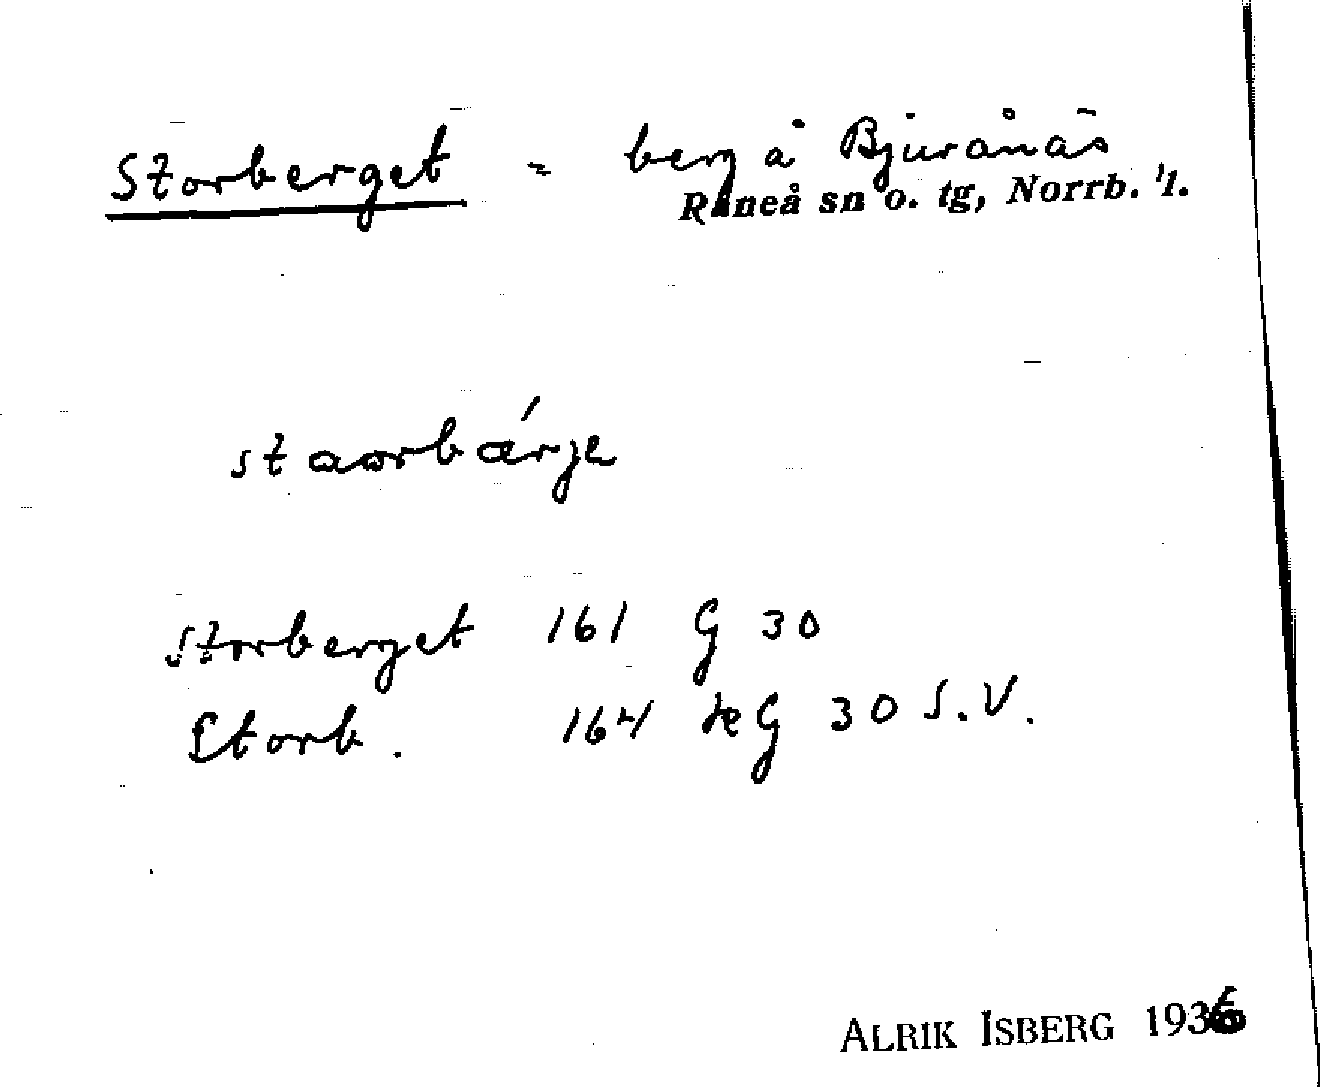 Storberget = berg å Bjurånäs
Råneå sn o. tg, Norrb. l.
staorbárje
Storberget 161 G 30
Storb. 164 KG 30 S.V.
ALRIK ISBERG 1936